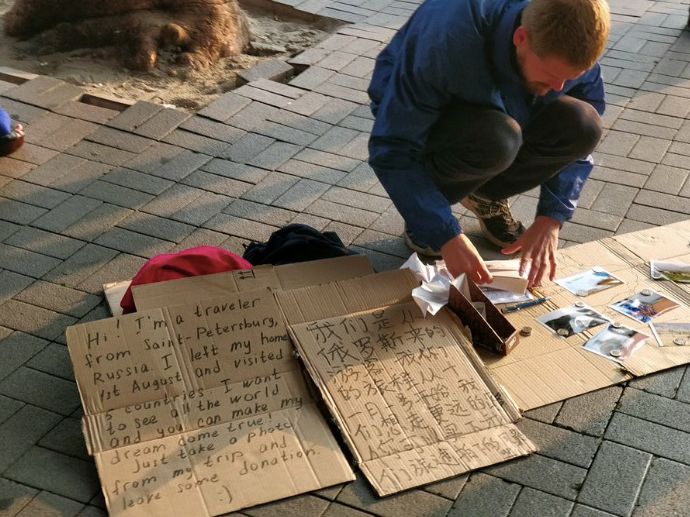 Hi! I'm a traveler
from Saint-Petersburg,
Russia. I left my home
1st August and visited
5 countries. I want
to see all the world
and you can make my
dream come true!
Just take a photo
from my trip and
leave some donation.
:)
我们是从
俄罗斯来的
游客我们
的旅程从十
月一号开始我
们想走更远的